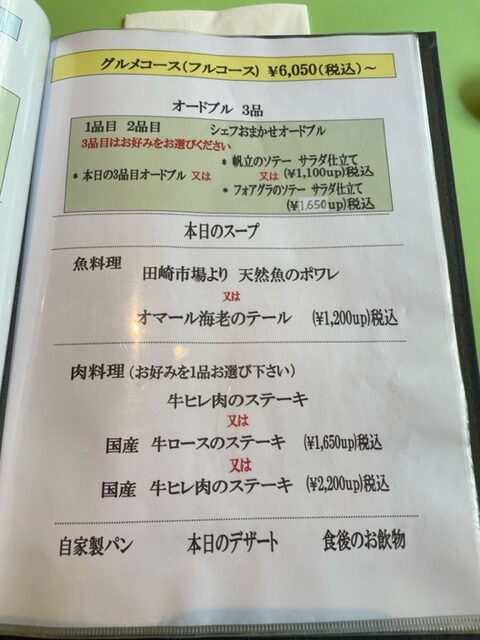 グルメコース(フルコース) ¥6,050(税込)~
オードブル 3品
1品目 2品目 シェフおまかせオードブル
3品目はお好みをお選びください
* 帆立のソテー サラダ仕立て
* 本日の3品目オードブル 又は 又は (¥1,100up)税込
* フォアグラのソテー サラダ仕立て
(¥1,650up)税込
本日のスープ
魚料理
田崎市場より 天然魚のポワレ
又は
オマール海老のテール (¥1,200up)税込
肉料理(お好みを1品お選び下さい)
牛ヒレ肉のステーキ
又は
国産 牛ロースのステーキ (¥1,650up)税込
又は
国産 牛ヒレ肉のステーキ (¥2,200up)税込
自家製パン 本日のデザート 食後のお飲物